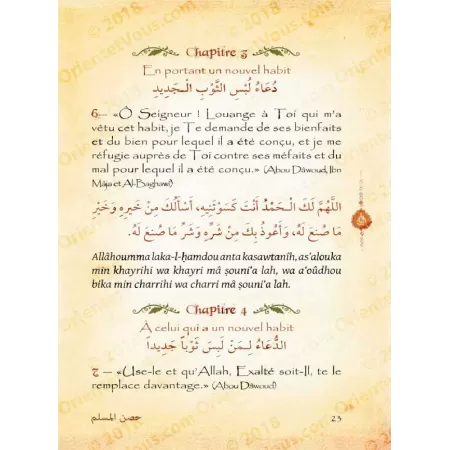 Chapitre 3
En portant un nouvel habit
دُعَاءُ لُبْسِ الثَّوْبِ الْـجَدِيدِ
6— «Ô Seigneur ! Louange à Toi qui m'a
vêtu cet habit, je Te demande de ses bienfaits
et du bien pour lequel il a été conçu, et je me
réfugie auprès de Toi contre ses méfaits et du
mal pour lequel il a été conçu.» (Abou Dâwoud, Ibn
Mâja et Al-Baghawî)
اللَّهُمَّ لَكَ الْـحَمْدُ أَنْتَ كَسَوْتَنِيهِ، أَسْأَلُكَ مِنْ خَيرِهِ وَخَيْرِ
مَا صُنِعَ لَهُ، وَأَعُوذُ بِكَ مِنْ شَرِّهِ وَشَرِّ مَا صُنِعَ لَهُ.
Allâhoumma laka-l-ḥamdou anta kasawtanîh, as'alouka
min khayrihi wa khayri mâ ṣouni'a lah, wa a'oûdhou
bika min charrihi wa charri mâ ṣouni'a lah.
Chapitre 4
À celui qui a un nouvel habit
الدُّعَاءُ لِـمَنْ لَبِسَ ثَوْباً جَدِيداً
— «Use-le et qu'Allah, Exalté soit-Il, te le
remplace davantage.» (Abou Dâwoud)
حصن المسلم
23
© 2018
OrientetVous.com